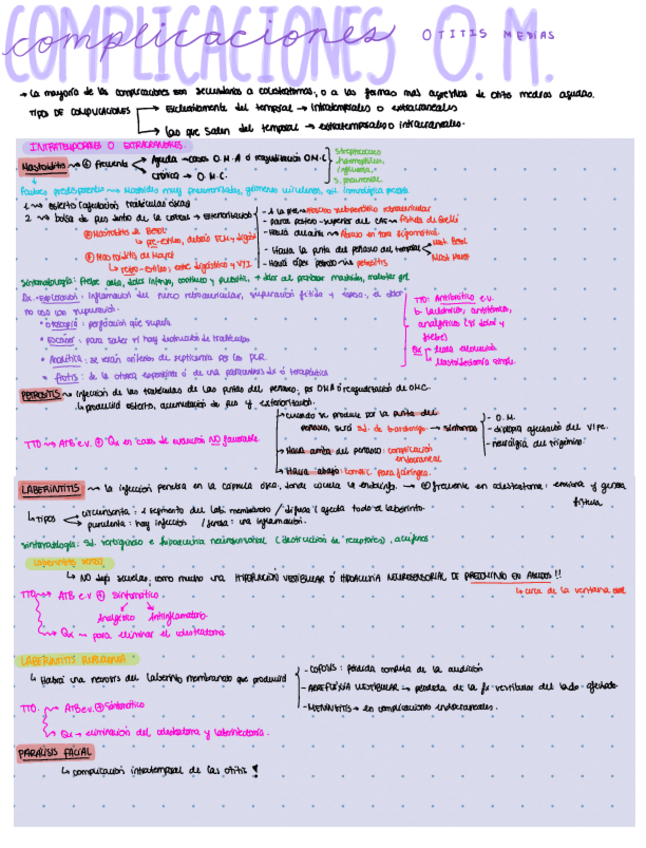 COMPLICACIONES O.M.
complicaciones OTITIS MEDIAS
→ La mayoría de las complicaciones son secundarias a colesteatomas, o a las formas más agresivas de otitis medias agudas.
TIPOS DE COMPLICACIONES → Exclusivamente del temporal → intratemporales o extracraneales
→ Las que salen del temporal → extratemporales o intracraneales.
INTRATEMPORALES O EXTRACRANEALES.
Mastoiditis → frecuente
Aguda → casos O.M.A o reagudización O.M.C
Crónica → O.M.C.
Streptococo
haemophilus,
influenza,
S. pneumoniae
Factores predisponentes → Mastoides muy pneumatizadas, gérmenes virulentos,
1
2 → bolsa de pus dentro de la cortical → Exteriorización
- A la piel → Absceso subperióstico retroauricular
- pared postero-superior del CAE → Fístula de Gellé
- Hacia delante → Absceso en fosa zigomática.
- Hacia la punta del peñasco del temporal
Mast. Bezold
Mast Mouret
- petrositis
Mastoiditis de Bezold
↳ pre-estileo, debajo ECM, digást
Mastoiditis de Mouret
↳ retro-estileo, entre digástrico y VYI
Sintomatología: Fiebre alta, dolor intenso, continuo y pulsátil, + dolor al presionar mastoides, malestar gnl.
Dx. Exploración: Inflamación del surco retroauricular, supuración fétida y espesa, el dolor
no cesa con supuración.
• Otoscopia: perforación que supura.
• Escáner: para saber si hay destrucción de trabéculas
• Analítica: se verán criterios de septicemia por la PCR.
• Frotis: de la otorrea espontánea ó de una paracentesis de ó terapéutica
TTO: Antibiótico e.v.
b-lactámico, antitérmico,
analgésico (si dolor y
fiebre)
Qx
Mastoidectomía simple.
PETROSITIS → infección de las trabéculas de las puntas del peñasco, por OMA ó reagudización de OMC.
↳ producirá osteítis, acumulación de pus y exteriorización.
→ cuando se produce por la punta del
peñasco, será Sd. de Gradenigo → síntomas
- O.M.
- diplopia afectación del VI pc.
- neuralgia del trigémino.
→ Hacia arriba del peñasco: complicación
endocraneal
→ Hacia abajo: complic. parafaríngea.
TTO → ATB e.v. Qx en casos de evolución NO favorable.
LABERINTITIS → la infección penetra en la cápsula ótica, donde circula la endolinfa. → frecuente en colesteatoma: erosiona y genera
fístula
↳ TIPOS
circunscrita: 1 segmento del lab. membranoso / difusa (afecta todo el laberinto.
purulenta: hay infección / serosa: una inflamación.
Sintomatología: Sd. vertiginoso e hipoacusia neurosensorial (destrucción de receptores), acúfenos
Laberintitis serosa
↳ NO deja secuelas, como mucho una HIPOFUNCIÓN VESTIBULAR Ó HIPOACUSIA NEUROSENSORIAL DE PREDOMINIO EN AGUDOS!!
↳ cerca de la ventana oval
TTO → ATB e.v Sintomático
Analgésico Antiinflamatorio
Qx → para eliminar el colesteatoma
LABERINTITIS PURULENTA
↳ Habrá una necrosis del laberinto membranoso que producirá
- COFOSIS: pérdida completa de la audición
- ARREFLEXIA VESTIBULAR → pérdida de la fx vestibular del lado afectado
- MENINGITIS → en complicaciones endocraneales.
TTO. → ATB e.v. Sintomático
Qx → eliminación del colesteatoma y laberintectomía.
PARÁLISIS FACIAL
↳ complicación intratemporal de las otitis !